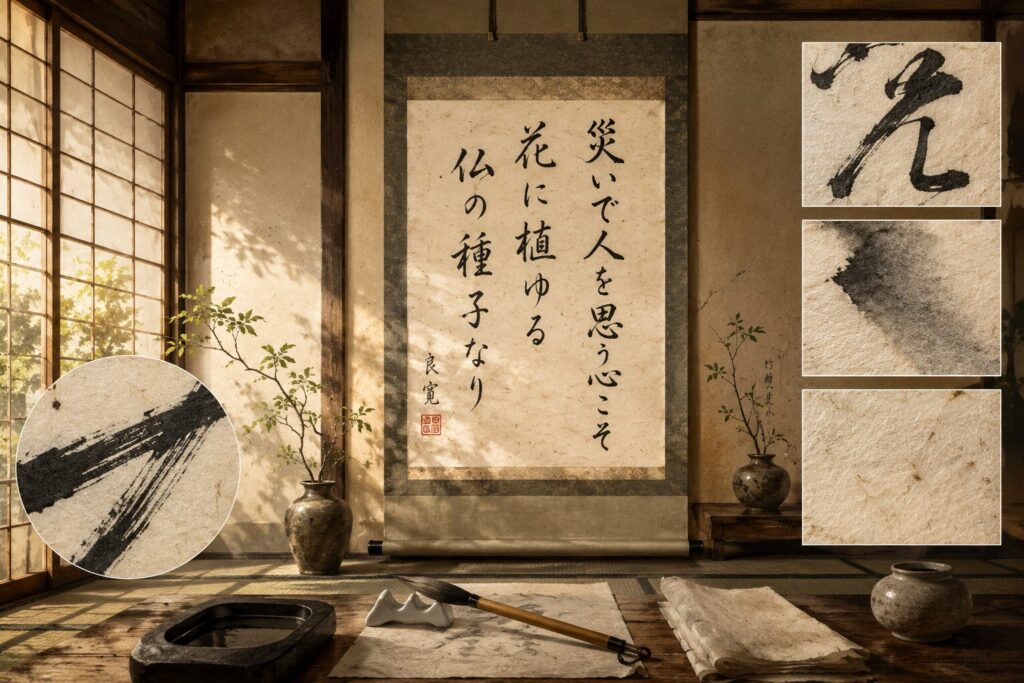 災いで人を思う心こそ
花に植ゆる
仏の種子なり
良寛